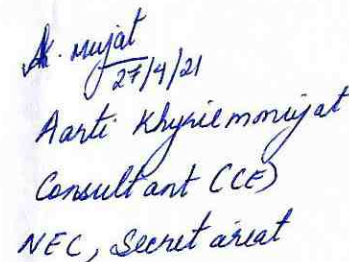 A. mujat
27/4/21
Aarti Khyriemmujat
Consultant (CE)
NEC, Secretariat